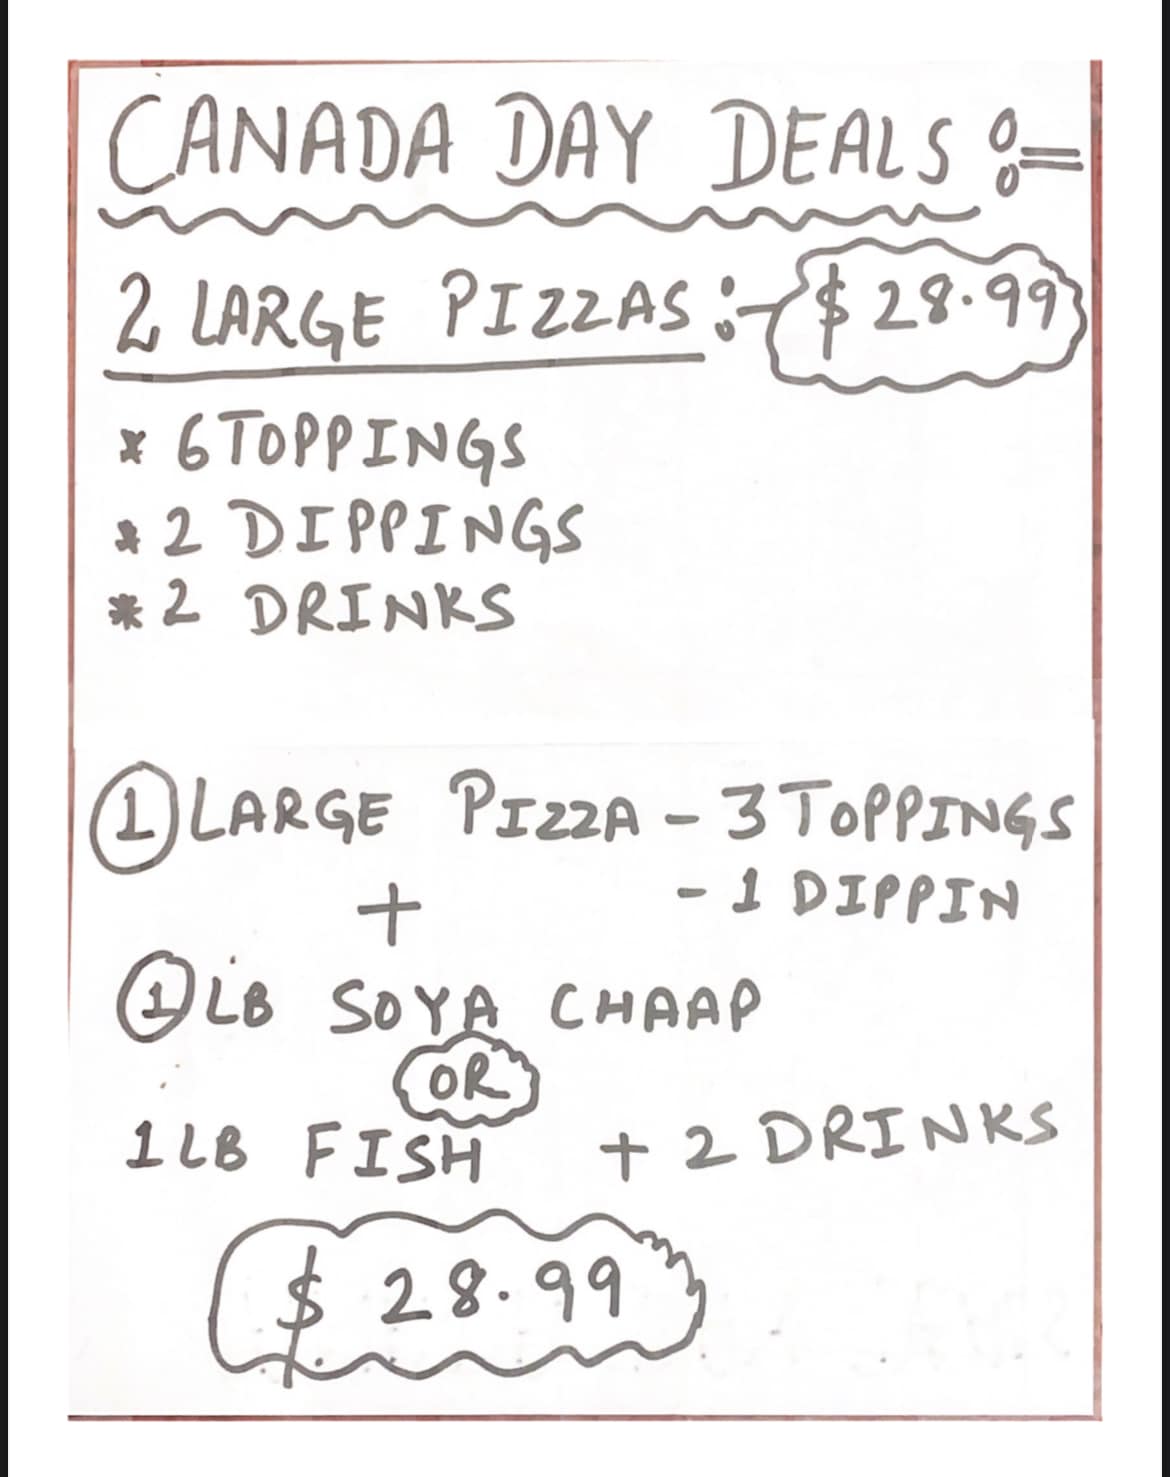 CANADA DAY DEALS :=
2 LARGE PIZZAS :- $ 28.99
* 6 TOPPINGS
* 2 DIPPINGS
* 2 DRINKS
1 LARGE PIZZA - 3 TOPPINGS
+ - 1 DIPPIN
1 LB SOYA CHAAP
OR
1 LB FISH + 2 DRINKS
$ 28.99